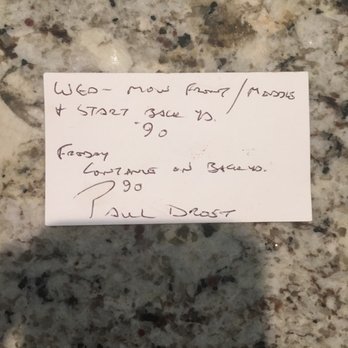 WED- MOW FRONT/MIDDLE
& START BACK YD.
90
FRIDAY
CONTINUE ON BACK YD.
90
PAUL DROST